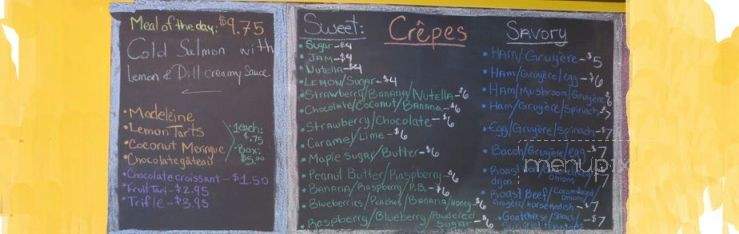 Meal of the day: $9.75
Cold Salmon with
Lemon & Dill creamy Sauce
• Madeleine
• Lemon Tarts
• Coconut Meringue
• Chocolate gâteau
1 each:
$.75
Box:
$5.00
• Chocolate croissant - $1.50
• Fruit Tart - $2.95
• Trifle - $3.95
Crêpes
Sweet:
• Sugar - $4
• JAM - $4
• Nutella - $4
• LEMON/Sugar - $4
• Strawberry/Banana/Nutella - $6
• Chocolate/Coconut/Banana - $6
• Strawberry/Chocolate - $6
• Caramel/Lime - $6
• Maple Sugar/Butter - $6
• Peanut Butter/Raspberry - $6
• Banana/Raspberry/P.B. - $6
• Blueberries/Peaches/Banana/Honey $6
• Raspberry/Blueberry/Powdered Sugar $6
SAVORY
• HAM/Gruyère - $5
• Ham/Gruyère/egg - $6
• Ham/Mushroom/Gruyère $6
• Ham/Gruyère/Spinach - $7
• Egg/Gruyère/Spinach - $7
• Bacon/Gruyère/egg - $7
• Roast $7
onions
• Roast Beef/Caramelized
onions
$7
menupix